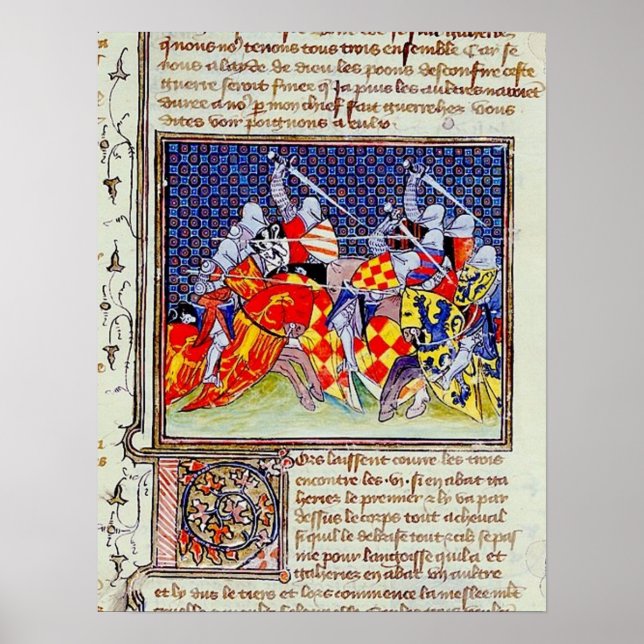 qnous no9 tenons tous trois ensemble Car se
nous a laide de dieu les poons desconfire ceste
guerre seroit finee q Ja puis les aultres nauroiet
duree a no9 p mon chief fait guerrehez vous
dites voir poignons a eulx
Lors laissent courre les trois
encontre les vi si en abat ga
heriez le premier & ly va par
dessus le corps tout a cheval
si quil le debrise tout & cil se pas
me pour langoisse quil a et
gaheriez en abat vn aultre
et ly dus le tiers et lors commence la meslee mlt